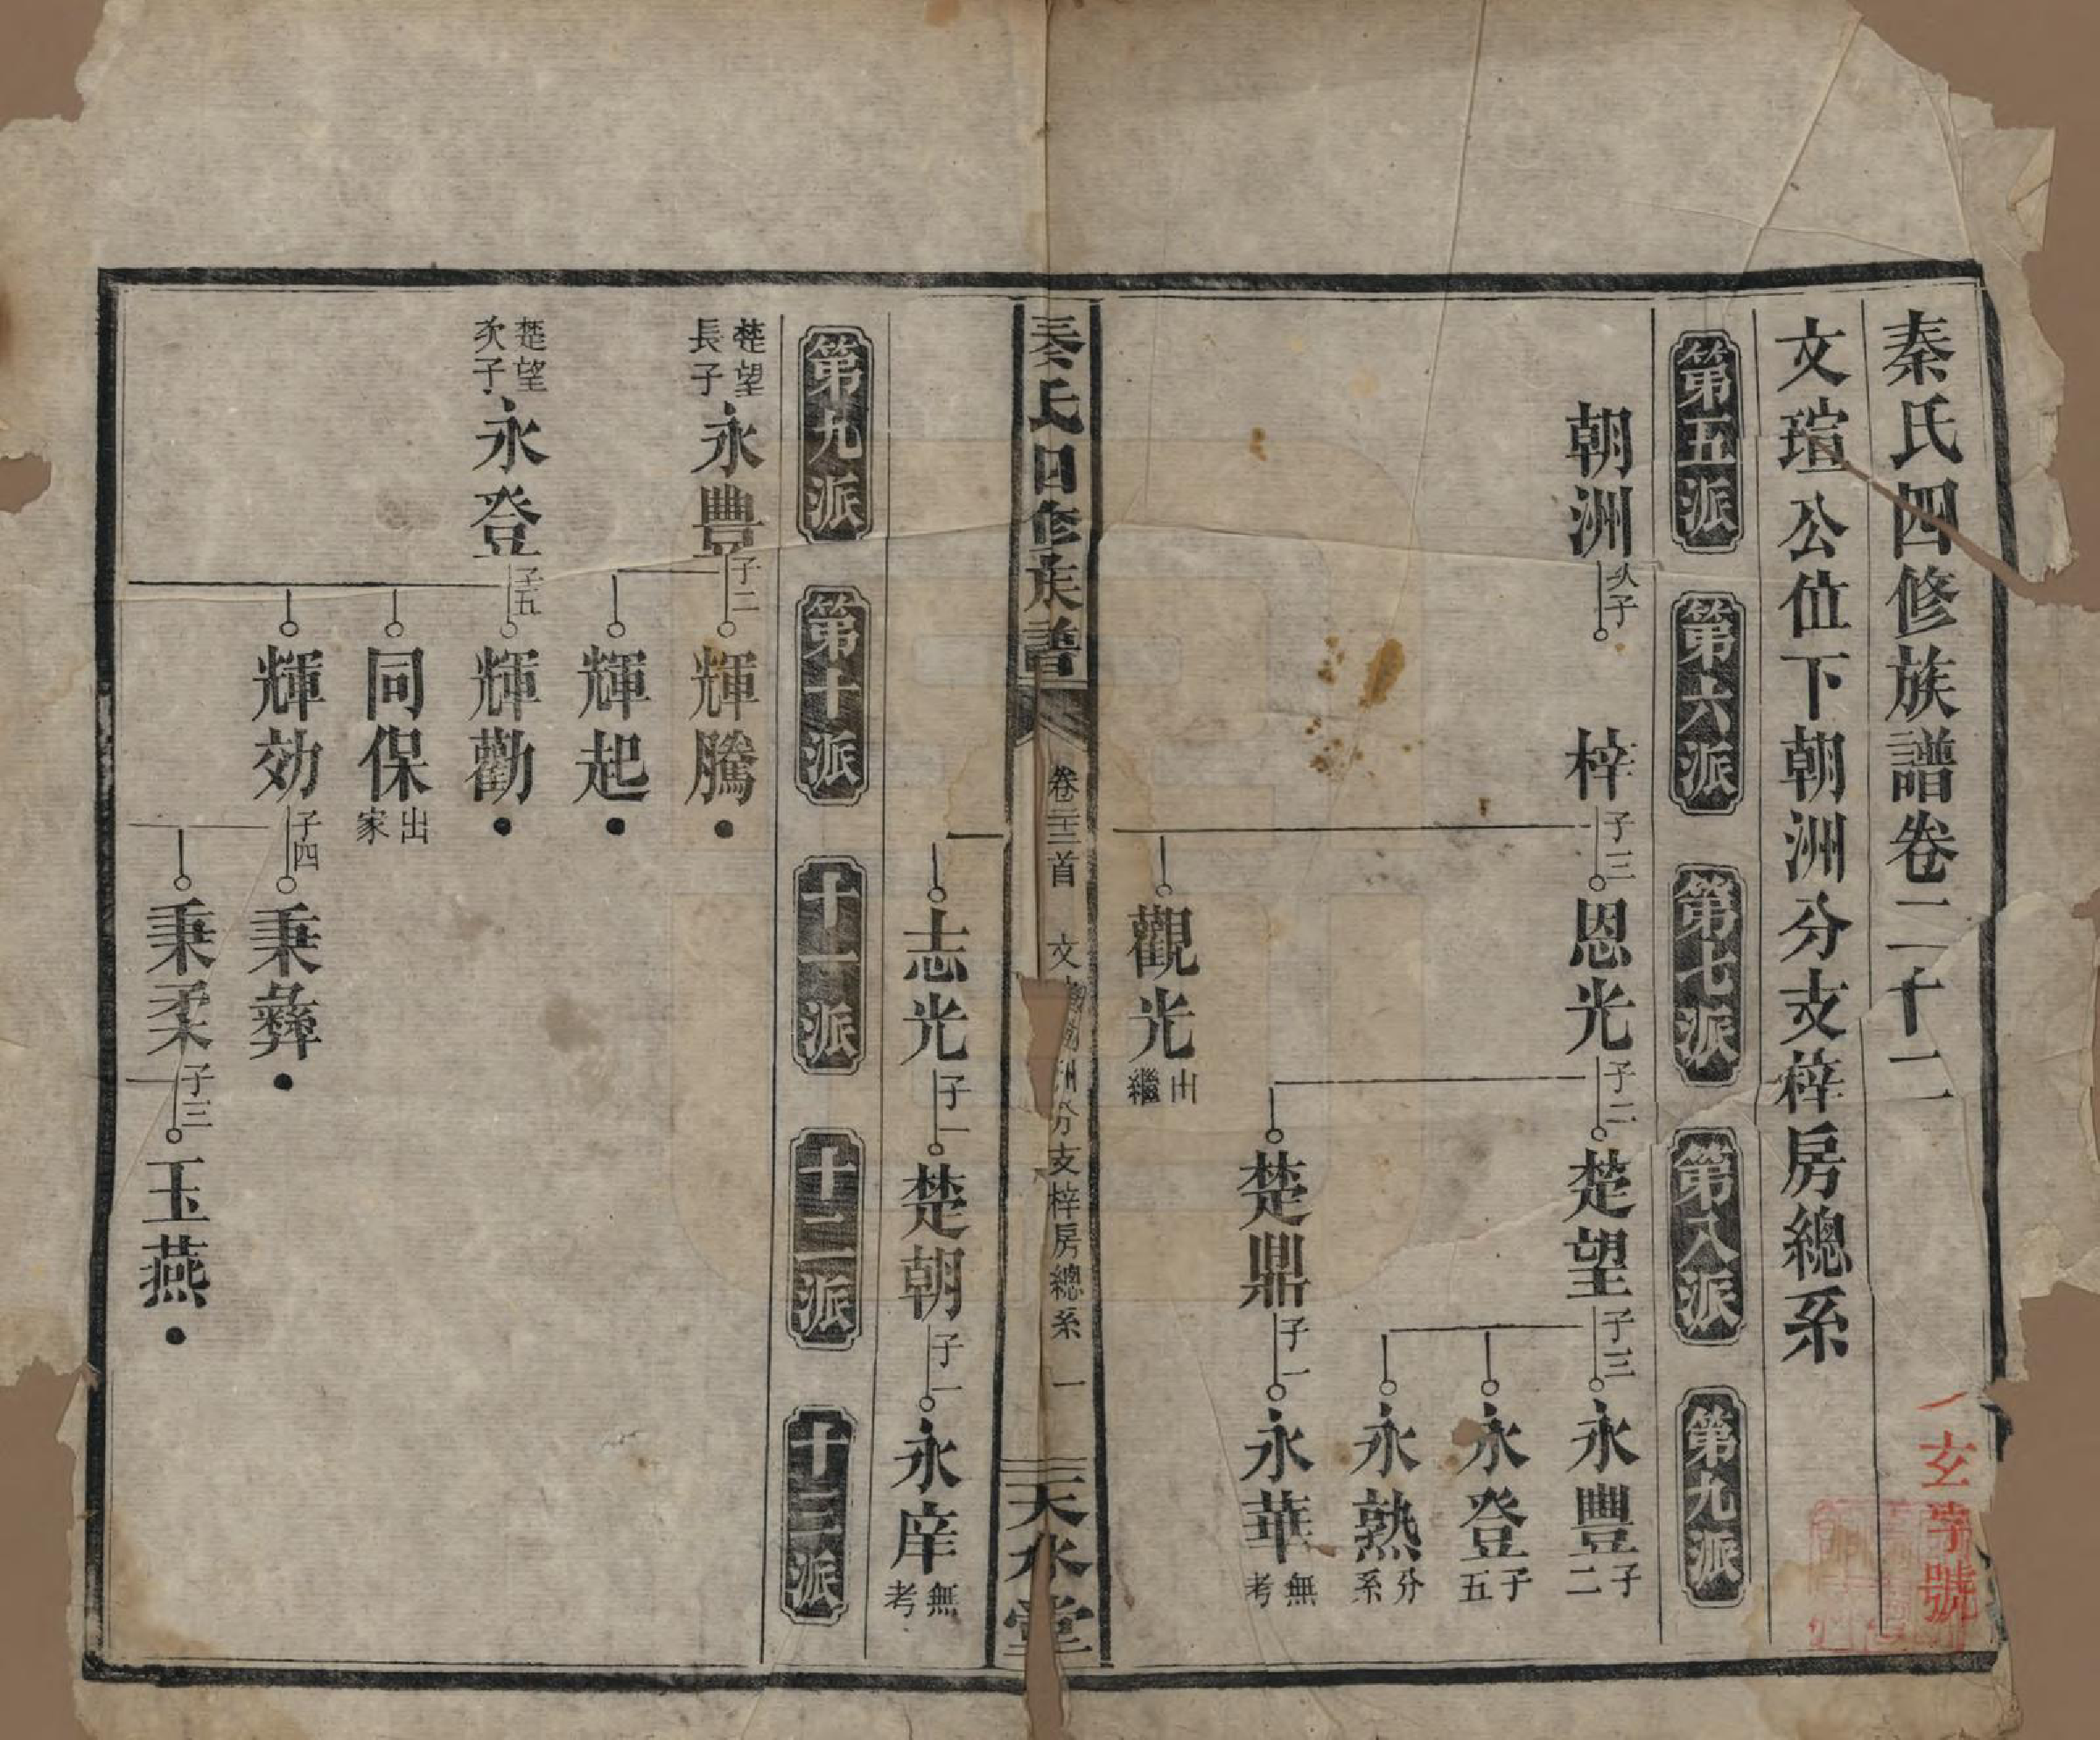 秦氏四修族譜卷二十二
文瑄公位下朝洲分支梓房總系
第五派
第六派
第七派
第八派
第九派
朝洲
次子
梓
子三
恩光
子二
楚望
子三
永豐
子二
永登
子五
永熟
分系
楚鼎
子一
永華
無考
觀光
出繼
秦氏四修族譜
卷二十二首
文
洲分支梓房總系
一
天水堂
志光
子一
楚朝
子一
永庠
無考
第九派
第十派
十一派
十二派
十三派
楚望長子
永豐
子二
輝騰
輝起
楚望次子
永登
子五
輝勸
同保
出家
輝効
子四
秉彝
秉柔
子三
玉燕
玄字號